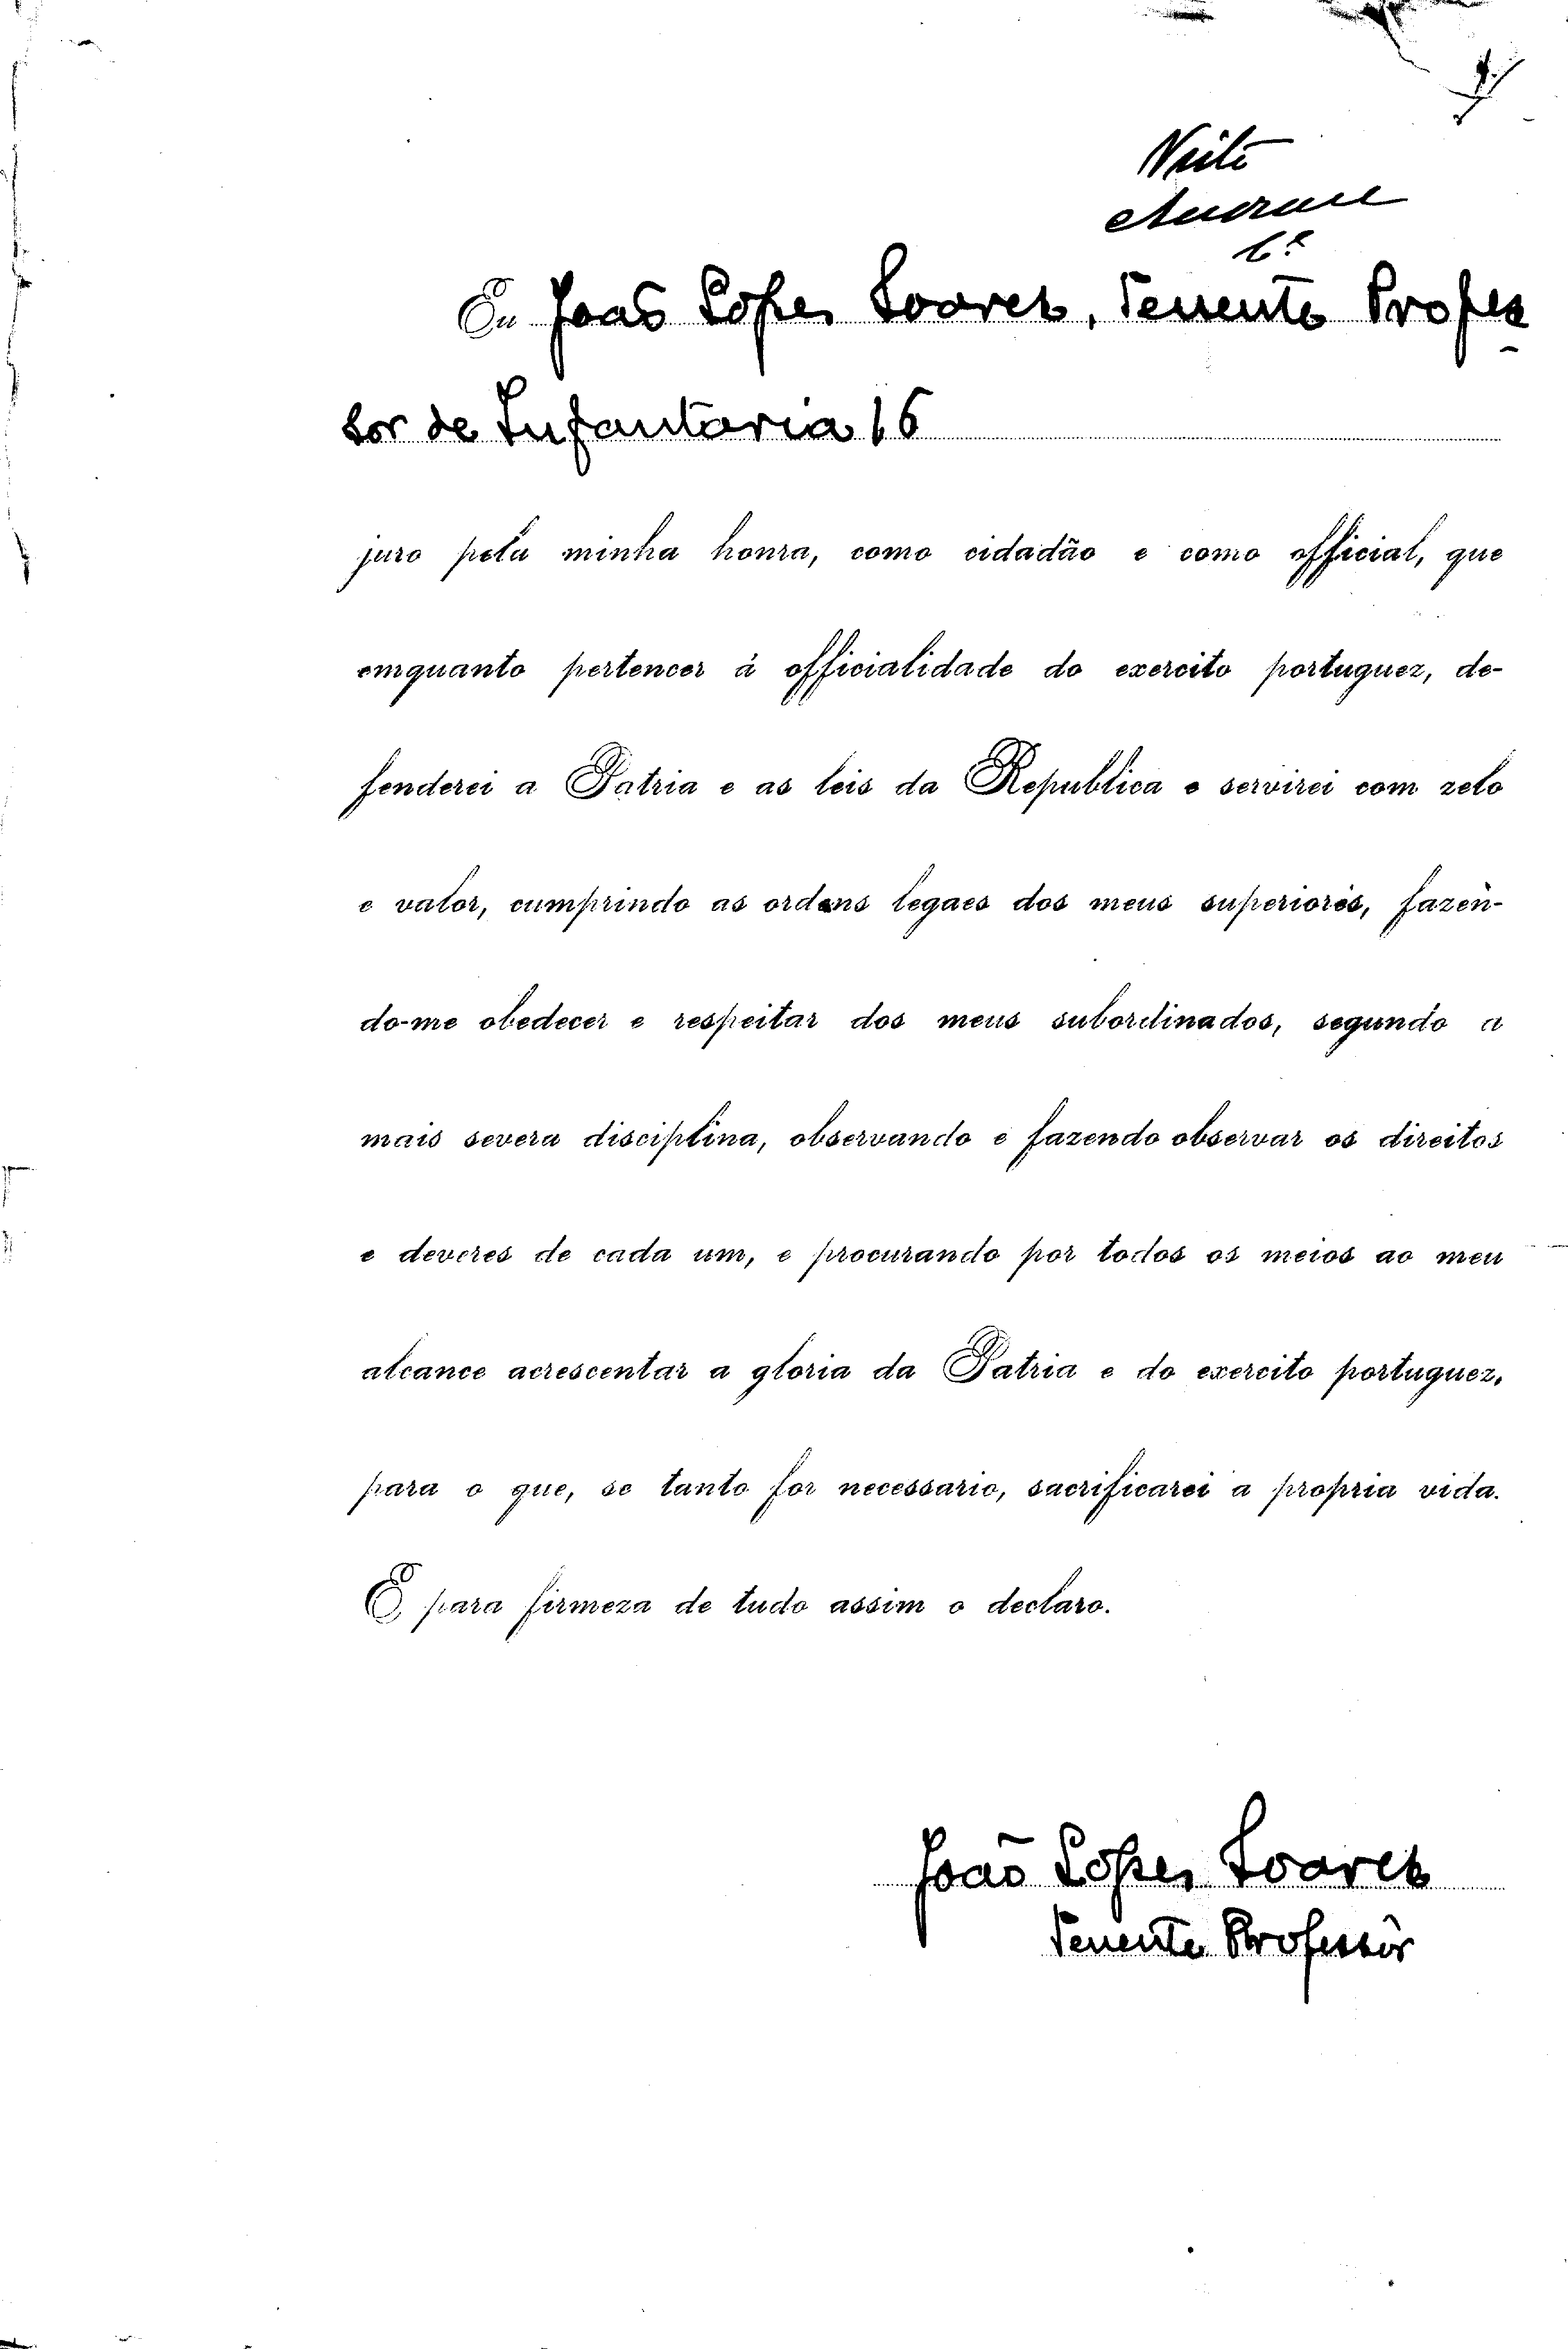 Eu João Lopes Soares, Tenente Profes
sor de Infantaria 16
juro pela minha honra, como cidadão e como official, que
emquanto pertencer á officialidade do exercito portuguez, de-
fenderei a Patria e as leis da Republica e servirei com zelo
e valor, cumprindo as ordens legaes dos meus superiores, fazen-
do-me obedecer e respeitar dos meus subordinados, segundo a
mais severa disciplina, observando e fazendo observar os direitos
e deveres de cada um, e procurando por todos os meios ao meu
alcance acrescentar a gloria da Patria e do exercito portuguez,
para o que, se tanto for necessario, sacrificarei a propria vida.
E para firmeza de tudo assim o declaro.
João Lopes Soares
Tenente Professor